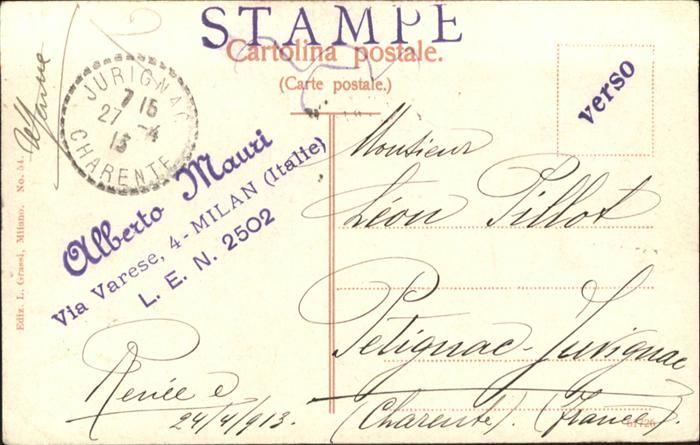 STAMPE
Cartolina postale.
(Carte postale.)
verso
JURIGNAC
7 15
27 -4
13
CHARENTE
Alberto Mauri
Via Varese, 4 - MILAN (Italie)
L. E. N. 2502
Ediz. L. Grassi, Milano. No. 54.
Monsieur
Léon Pillot
Petignac-Jurignac
(Charente). (France)
24/4/913.
61726